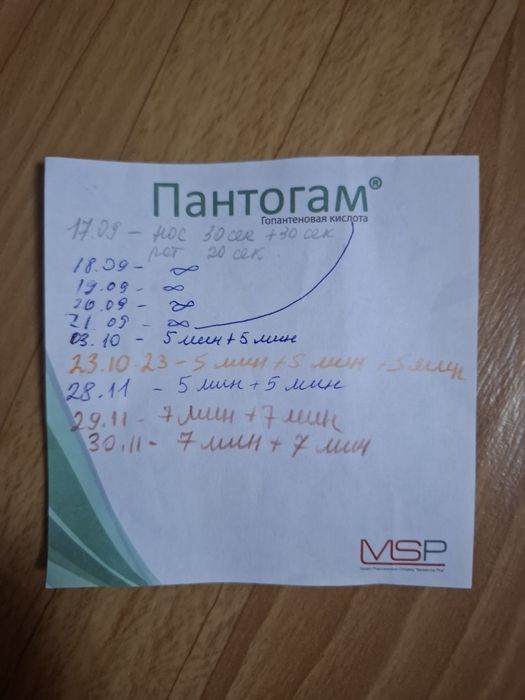 Пантогам®
Гопантеновая кислота
17.09 - нос 30 сек + 30 сек
рот 20 сек.
18.09 - ∞
19.09 - ∞
20.09 - ∞
21.09 - ∞
03.10 - 5 мин + 5 мин
23.10.23 - 5 мин + 5 мин + 5 мин
28.11 - 5 мин + 5 мин
29.11 - 7 мин + 7 мин
30.11 - 7 мин + 7 мин
MSP